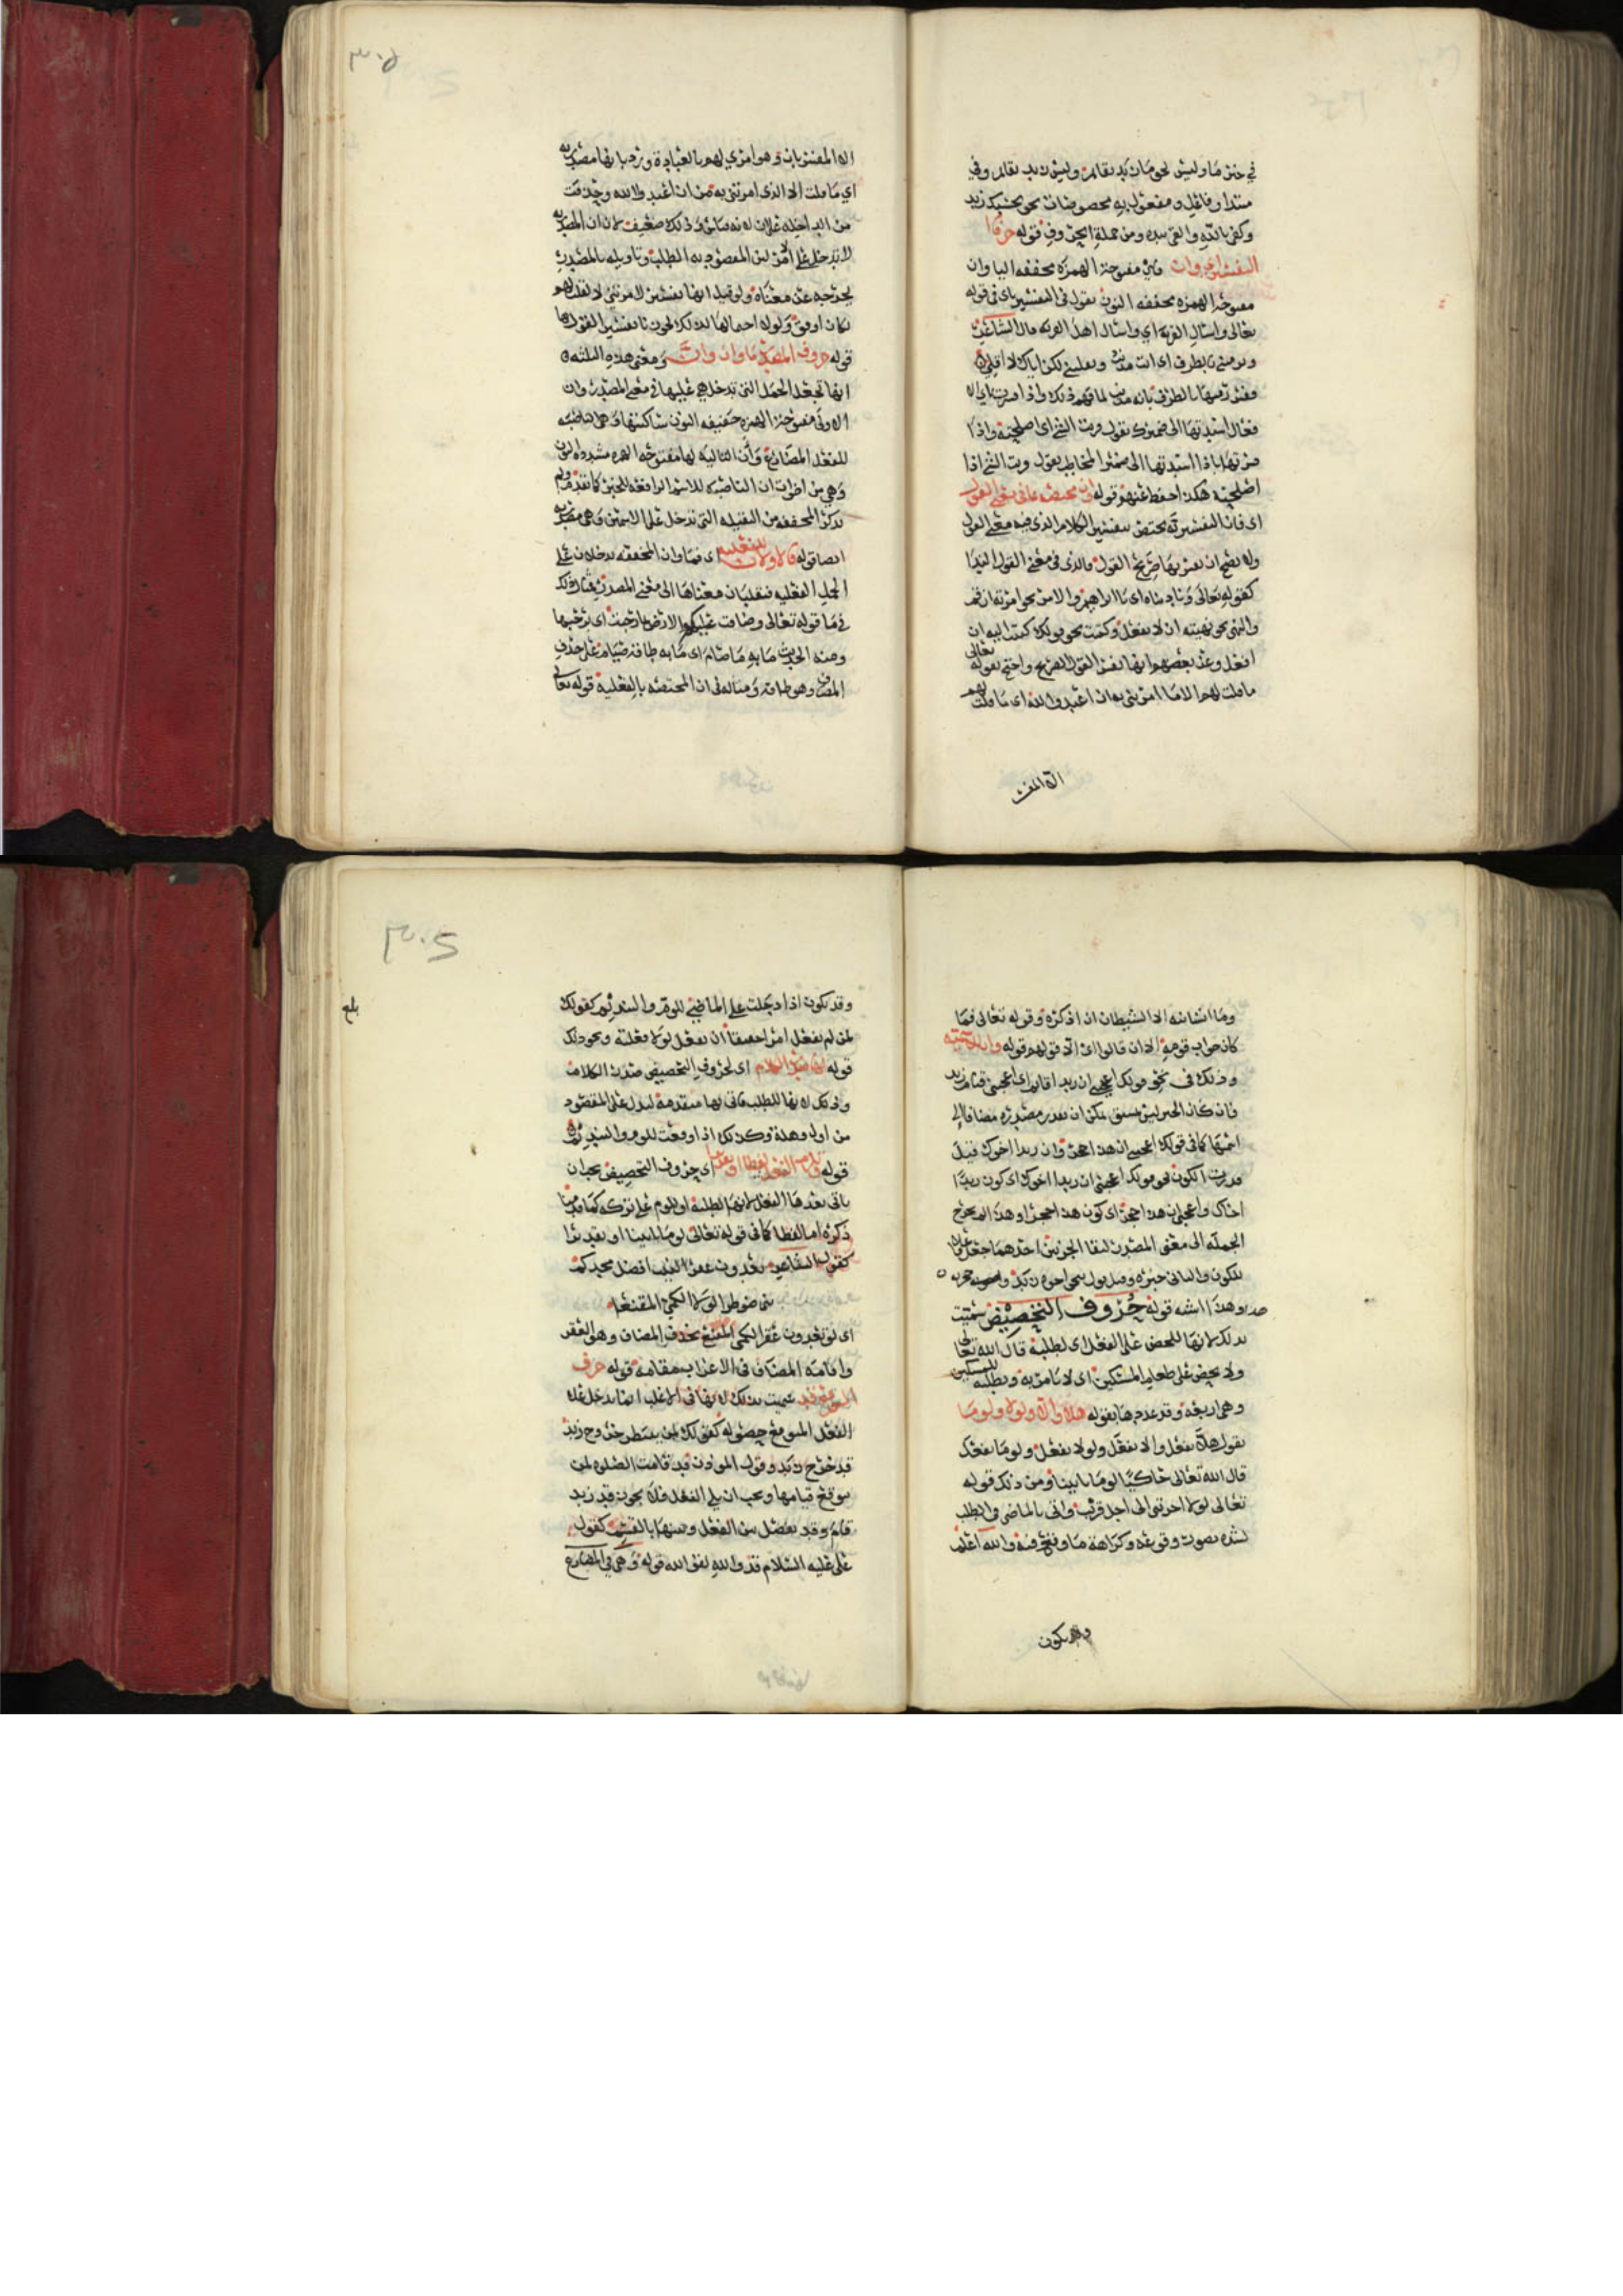 في خبر ما وليس نحو ما زيد بقائم وليس زيد بقائم وفي
مبتدا وفاعل ومفعول به مخصوصات نحو بحسبك زيد
وكفى بالله والقى بيده ومن جملة الحروف قوله حرفا
التفسير اي وان فاي مفتوحة الهمزة مخففه اليا وان
مفتوحة الهمزه مخففه النون تقول في التفسير باي في قوله
تعالى واسال القرية اي واسال اهل القريه قال الشاعر
وترمينني بالطرف اي انت مذنب وتقلينني لكن اياك لا اقلي
ففسر رميها بالطرف بانه مذنب لما فهم ذلك واذا فسرت باي
فعلا اسندتها الى ضميرك تقول رمت الشي اي اصلحته واذا
فسرتها باذا اسندتها الى ضمير المخاطب تقول رمت الشي اذا
اصلحته هكذا احفظ عنهم قوله وان مختص بما في معنى القول
اي فان التفسيريه تختص بتفسير الكلام الذي فيه معنى القول
ولا يصح ان يفسر بها صريح القول والذي في معنى القول الندا
كقوله تعالى وناديناه اي يا ابراهيم والامر نحو امرته ان قم
والنهي نحو نهيته ان لا تفعل وكتبت نحو قولك كتبت اليه ان
افعل وعند بعضهم انها تفسر القول الصريح واحتج بقوله تعالى
ما قلت لهم الا ما امرتني به ان اعبدوا الله اي ما قلت لهم
الا المفسر
الا المفسر بان وهو امري لهم بالعبادة ورد بانها مصدريه
اي ما قلت الا الذي امرتني به من ان اعبدوا الله وحذفت
من الداخلة على ان لانه قياس وذلك ضعيف لان ان المصدريه
لا تدخل على الامر لان المقصود به الطلب وتاويله بالمصدر
يخرجه عن معناه ولو قيل انها تفسير لامرتني لا لقلت لهم
لكان اوفق ولولا احتمالها لذلك لجوزنا تفسير القول بها
قوله حروف المصدر ما وان وان ومعنى هذه الثلثه
انها تجعل الجمل التي تدخل هي عليها في معنى المصدر وان
الاولى مفتوحة الهمزه خفيفه النون ساكنتها وهي ناصبه
للفعل المضارع وان التاليه لها مفتوحه الهمزه مشدده النون
وهي من اخوات ان الناصبه للاسم الرافعه للخبر كما تقدم ولم
يذكر المخففه من الثقيله التي تدخل على الاسمين وهي مصدريه
ايضا قوله فالاولان للفعليه اي فما وان المخففه يدخلان على
الجمل الفعليه فتقلبان معناها الى معنى المصدر مثال ذلك
في ما قوله تعالى وضاقت عليكم الارض بما رحبت اي برحبها
ومنه الحديث ما به ما صام اي ما به طاقة صيام على حذف
المضاف وهو طاقه ومثاله في ان المختصه بالفعلية قوله تعالى
وما انسانيه الا الشيطان ان اذكره وقوله تعالى فما
كان جواب قومه الا ان قالوا اي الا قولهم قوله وان للاسميه
وذلك في نحو قولك اعجبني ان زيدا قائم اي اعجبني قيام زيد
فان كان الخبر ليس بمشتق يمكن ان يقدر مصدره مضافا الى
اسمها كما في قولك اعجبني ان هذا حجر وان زيدا اخوك قيل
قدرت الكون نحو قولك اعجبني ان زيدا اخوك اي كون زيدا
اخاك واعجبني ان هذا حجر اي كون هذا حجرا وهذا لا يخرج
الجمله الى معنى المصدر لبقا الجزئين احدهما جعل فاعلا
للكون والثاني خبره وقيل يؤل بنحو اخوة زيد وحجريه
هذا وهذا اشبه قوله حروف التحضيض سميت
بذلك لانها للحض على الفعل اي لطلبه قال الله تعالى
ولا يحض على طعام المسكين اي لا يامر به ويطلبه للمسكين
وهي اربعة وقد عدها بقوله هلا والا ولولا ولوما
تقول هلا تفعل والا تفعل ولولا تفعل ولوما تفعل
قال الله تعالى حاكيا لوما تاتينا ومن ذلك قوله
تعالى لولا اخرتني الى اجل قريب واتى بالماضي في الطلب
لشده تصور وقوعه وكراهة ما وقع فيه والله اعلم
وقد يكون
بلغ
وقد يكون اذا دخلت على الماضي للوم والتنديم كقولك
لمن لم يفعل امرا حقيقا ان يفعل لولا فعلته ونحو ذلك
قوله لها صدر الكلام اي لحروف التحضيض صدر الكلام
وذلك لانها للطلب فاتي بها متقدمة ليدل على المقصود
من اول وهلة وكذلك اذا وقعت للوم والتنديم
قوله ويلزم الفعل لفظا او تقديرا اي حروف التحضيض يجب ان
ياتي بعدها الفعل لانها لطلبه او للوم على تركه كما قدمنا
ذكره اما لفظا كما في قوله تعالى لوما تاتينا او تقديرا
كقول الشاعر تعدون عقر النيب افضل مجدكم
بني ضوطرى لولا الكمي المقنعا
اي لو تعدون عقر الكمي المقنع بحذف المضاف وهو العقر
واقامة المضاف في الاعراب مقامه قوله حرف
التوقع قد سميت بذلك لانها في الاغلب انما تدخل على
الفعل المتوقع حصوله كقولك لمن ينتظر خروج زيد
قد خرج زيد وقول المؤذن قد قامت الصلوه لمن
يتوقع قيامها ويجب ان يلي الفعل فلا يجوز قد زيد
قام وقد يفصل بين الفعل وبينها بالقسم كقول
علي عليه السلام قد والله لقوا الله قوله وهي في المضارع